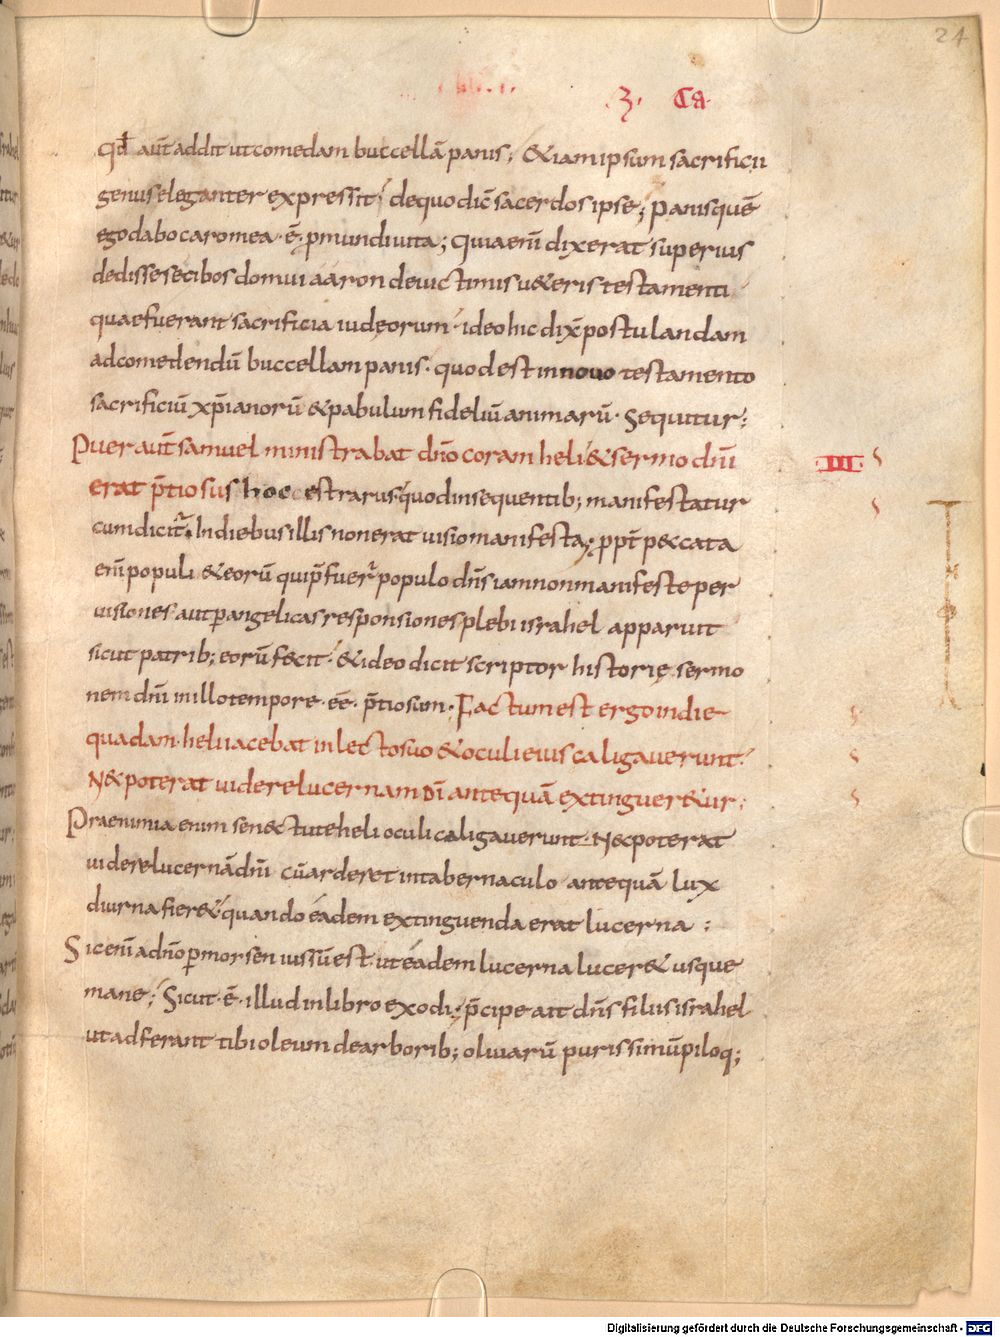 24
.3. Ca.
qđ aut̄ addit ut comedam buccellā panis; & iam ipsum sacrificii
genus eleganter expressit; de quo dic̄ sacerdos ipse; Panis quē
ego dabo caro mea .ē. p mundi uita; Quia eni̅ dixerat superius
dedisse se cibos domui aaron de uictimis u&eris testamenti
quae fuerant sacrificia iudęorum. ideo hic dix̄ postulandam
ad comedendū buccellam panis. quod est in nouo testamento
sacrificiū xp̄ianorū & pabulum fideliū animarū. Sequitur:
Puer aut̄ samuel ministrabat dn̄o coram heli & sermo dn̄i
III
erat p̄tiosus hoc est rarus. quod in sequentib; manifestatur
cum dicit̄. In diebus illis non erat uisio manifesta; ppt̄ peccata
eni̅ populi & eorū qui p̄fuer̄ populo dn̄s iam non manifeste per
uisiones aut p angelicas responsiones plebi israhel apparuit
sicut patrib; eorū fecit. & ideo dicit scriptor historię sermo
nem dn̄i in illo tempore .ēē. p̄tiosum. Factum est ergo in die
quadam. heli iacebat in lecto suo & oculi eius caligauerunt.
N& poterat uidere lucernam dī antequā extinguer&ur;
Prae nimia enim senectute heli oculi caligauerunt. Nec poterat
uidere lucernā dn̄i cū arderet in tabernaculo antequā lux
diurna fier& quando eadem extinguenda erat lucerna:
Sic eni̅ a dn̄o p morsen iussū est ut eadem lucerna lucer& usque
mane; Sicut .ē. illud in libro exodi; p̄cipe ait dn̄s filiis israhel
ut adferant tibi oleum de arborib; oliuarū purissimū piloq;
Digitalisierung gefördert durch die Deutsche Forschungsgemeinschaft - DFG